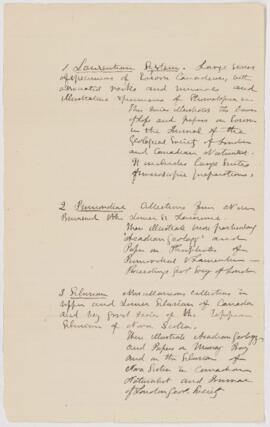 1 Laurentian System. Large series
of specimens of Eozoon Canadense, with
associated rocks and minerals and
illustrative specimens of
This series illustrates the Dawn
of Life and papers on Eozoon
in the Journal of the
Geological Society of London
and Canadian Naturalist.
It includes large suites
of microscopic preparations.
2 Primordial Collections from New
Brunswick & the Lower St Lawrence.
These illustrate more particularly
"Acadian Geology" and
Papers on of
Primordial &
Proceedings Geol. Socy of London
3 Silurian Miscellaneous collections in
Upper and Lower Silurian of Canada
and very good series of the Upper
Silurian of Nova Scotia.
These illustrate Acadian Geology
and Papers on Murray Bay
and on the Silurian of
Nova Scotia in Canadian
Naturalist and Journal
of London Geol. Society